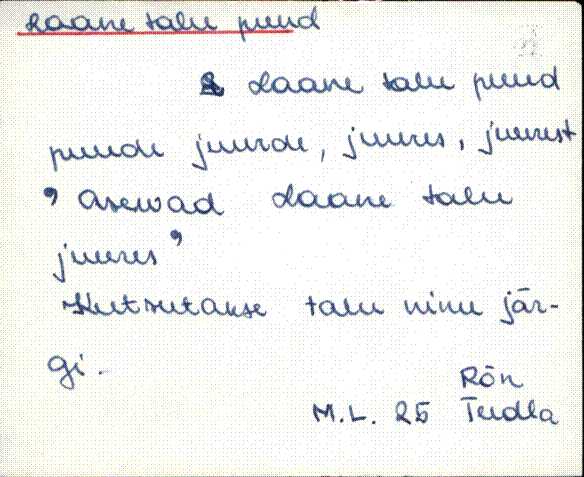 Laane talu puud
Laane talu puud
puude juurde, juures, juurest
, Asewad Laane talu
juures ’
Kutsutakse talu nimi jär-
gi.
Rõn
M.L. 25 Tudla